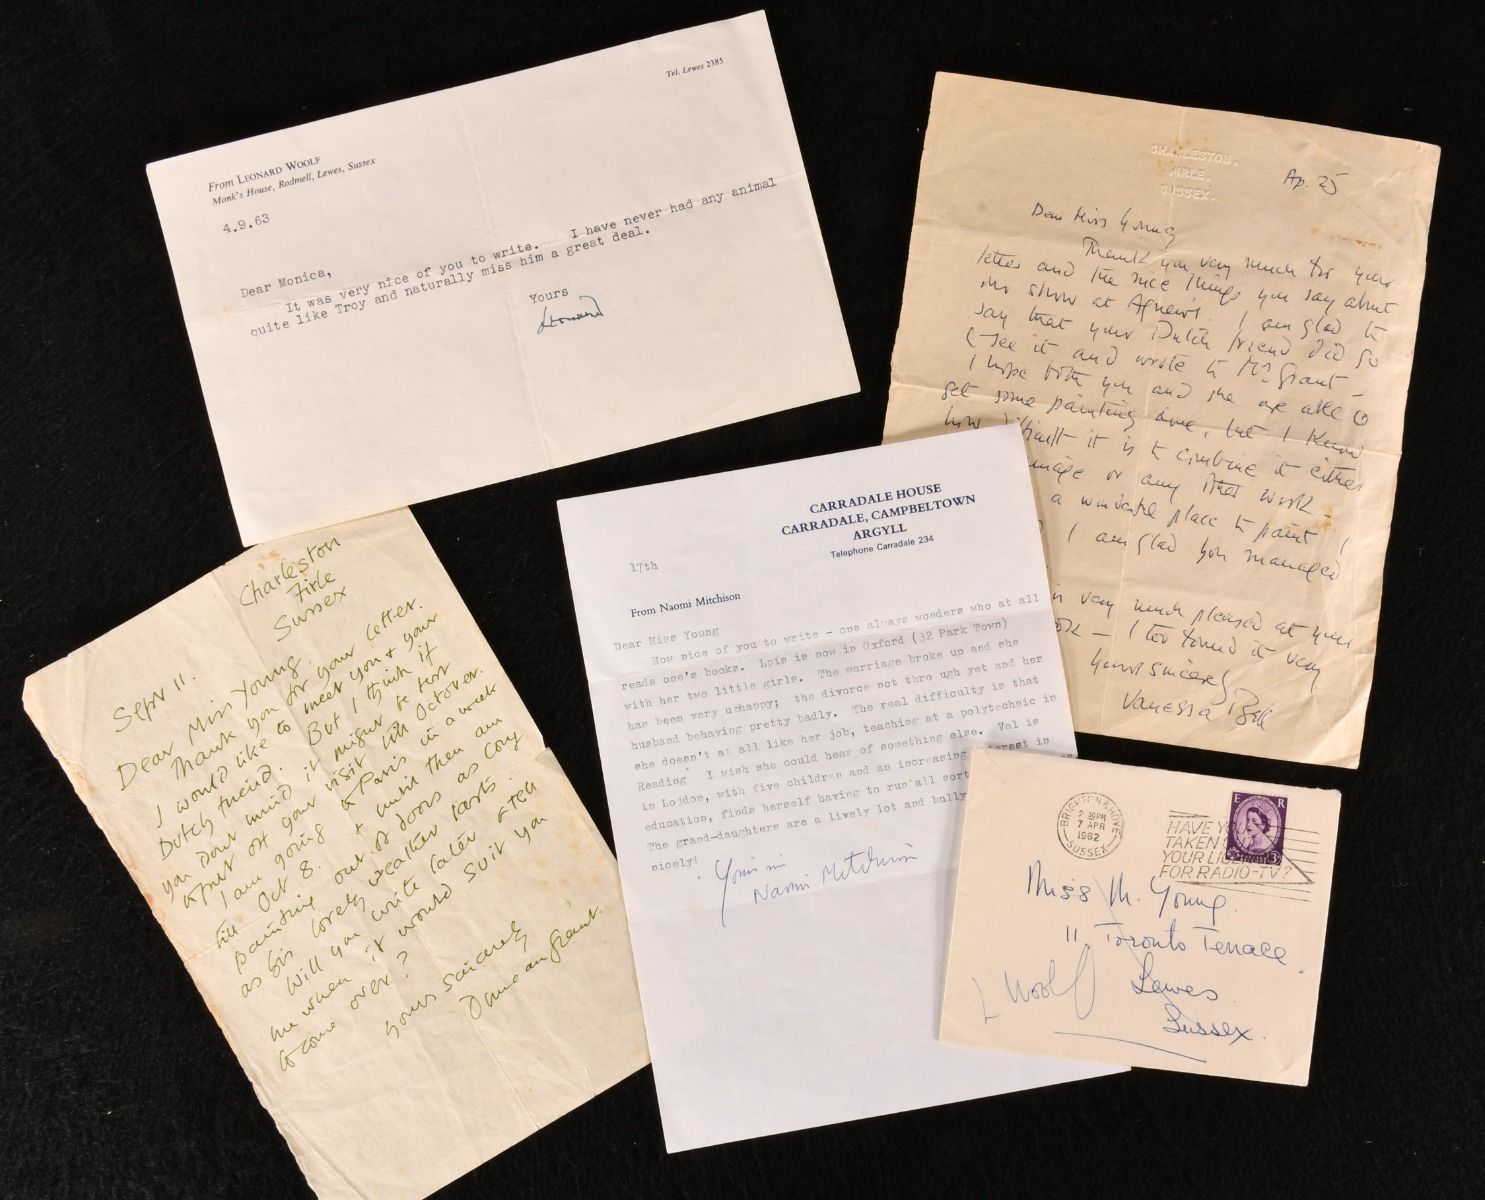 Tel. Lewes 2385
From LEONARD WOOLF
Monk's House, Rodmell, Lewes, Sussex
4.9.63
Dear Monica,
It was very nice of you to write. I have never had any animal
quite like Troy and naturally miss him a great deal.
Yours
Leonard
CHARLESTON,
FIRLE,
SUSSEX.
Ap. 25
Dear Miss Young
Thank you very much for your
letter and the nice things you say about
my show at Agnew's. I am glad to
say that your Dutch friend did so
see it and wrote to Mr Grant –
I hope both you and she are able to
get some painting done, but I know
how difficult it is to combine it either
or any other work –
a wonderful place to paint I
I am glad you managed
very much pleased at your
– I too found it very
Yours sincerely
Vanessa Bell
Charleston
Firle
Sussex
Sept 11.
Dear Miss Young
Thank you for your letter.
I would like to meet you & your
Dutch friend. But I think if
you dont mind it might be best
to put off your visit till October.
I am going to Paris in a week
till Oct 8. & until then am
painting out of doors as long
as this lovely weather lasts.
Will you write later & tell
me when it would suit you
to come over?
Yours sincerely
Duncan Grant.
CARRADALE HOUSE
CARRADALE, CAMPBELTOWN
ARGYLL
Telephone Carradale 234
17th
From Naomi Mitchison
Dear Miss Young
How nice of you to write - one always wonders who at all
reads one's books. Lois is now in Oxford (32 Park Town)
with her two little girls. The marriage broke up and she
has been very unhappy; the divorce not through yet and her
husband behaving pretty badly. The real difficulty is that
she doesn't at all like her job, teaching at a polytechnic in
Reading I wish she could hear of something else. Val is
in Lojdon, with five children and an increasing interest in
education, finds herself having to run all sort
The grand-daughters are a lively lot and bully
nicely!
Naomi Mitchison
BRIGHTON & HOVE
7 APR
1962
SUSSEX
HAVE YOU
TAKEN
YOUR LIC
FOR RADIO-TV?
E R
3D
Miss M. Young.
11 Toronto Terrace
Lewes
Sussex.
L Woolf